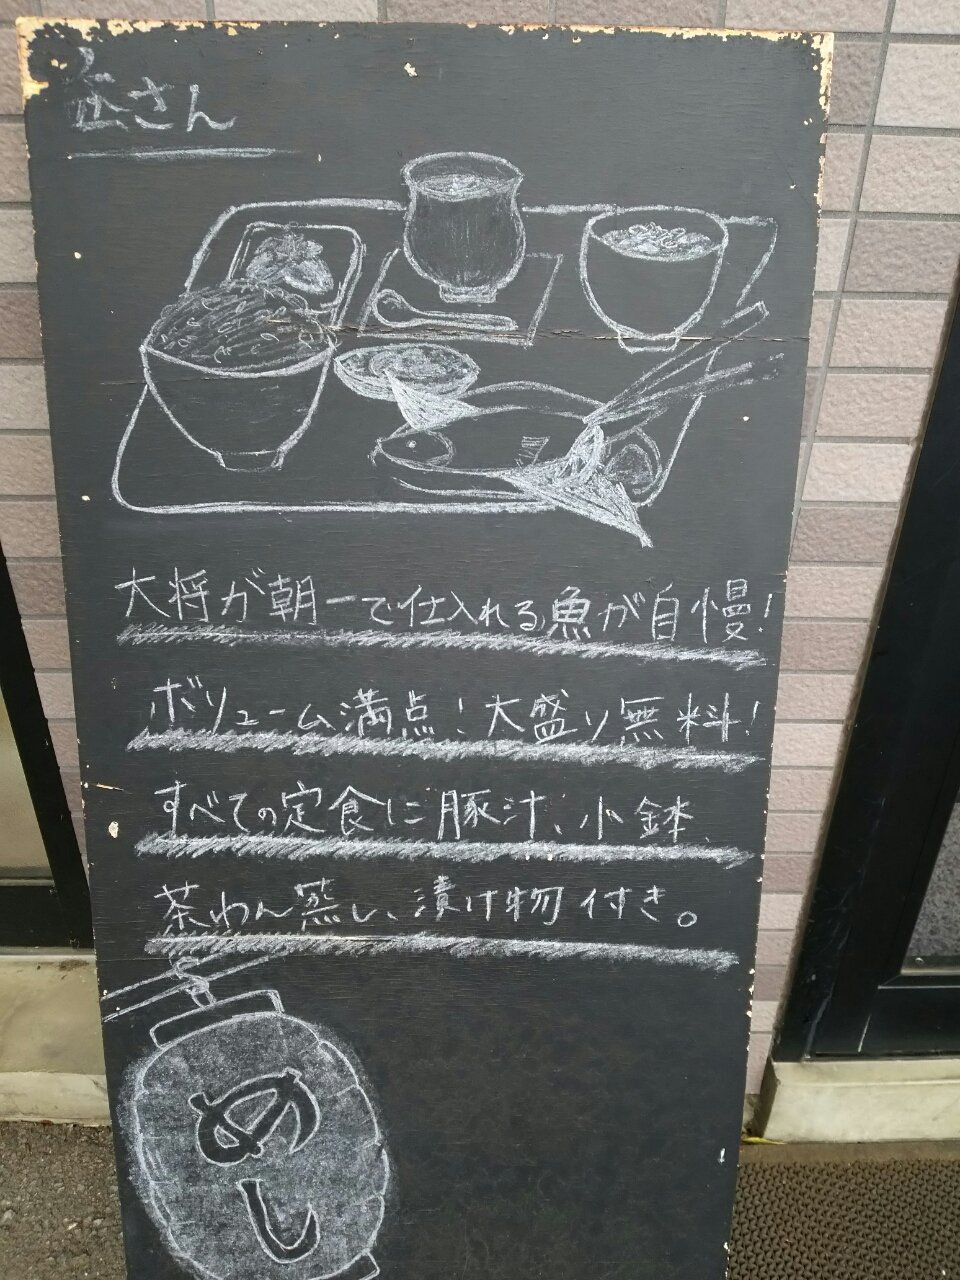 さん
大将が朝一で仕入れる魚が自慢!
ボリューム満点!大盛り無料!
すべての定食に豚汁、小鉢、
茶わん蒸し、漬け物付き。
めし